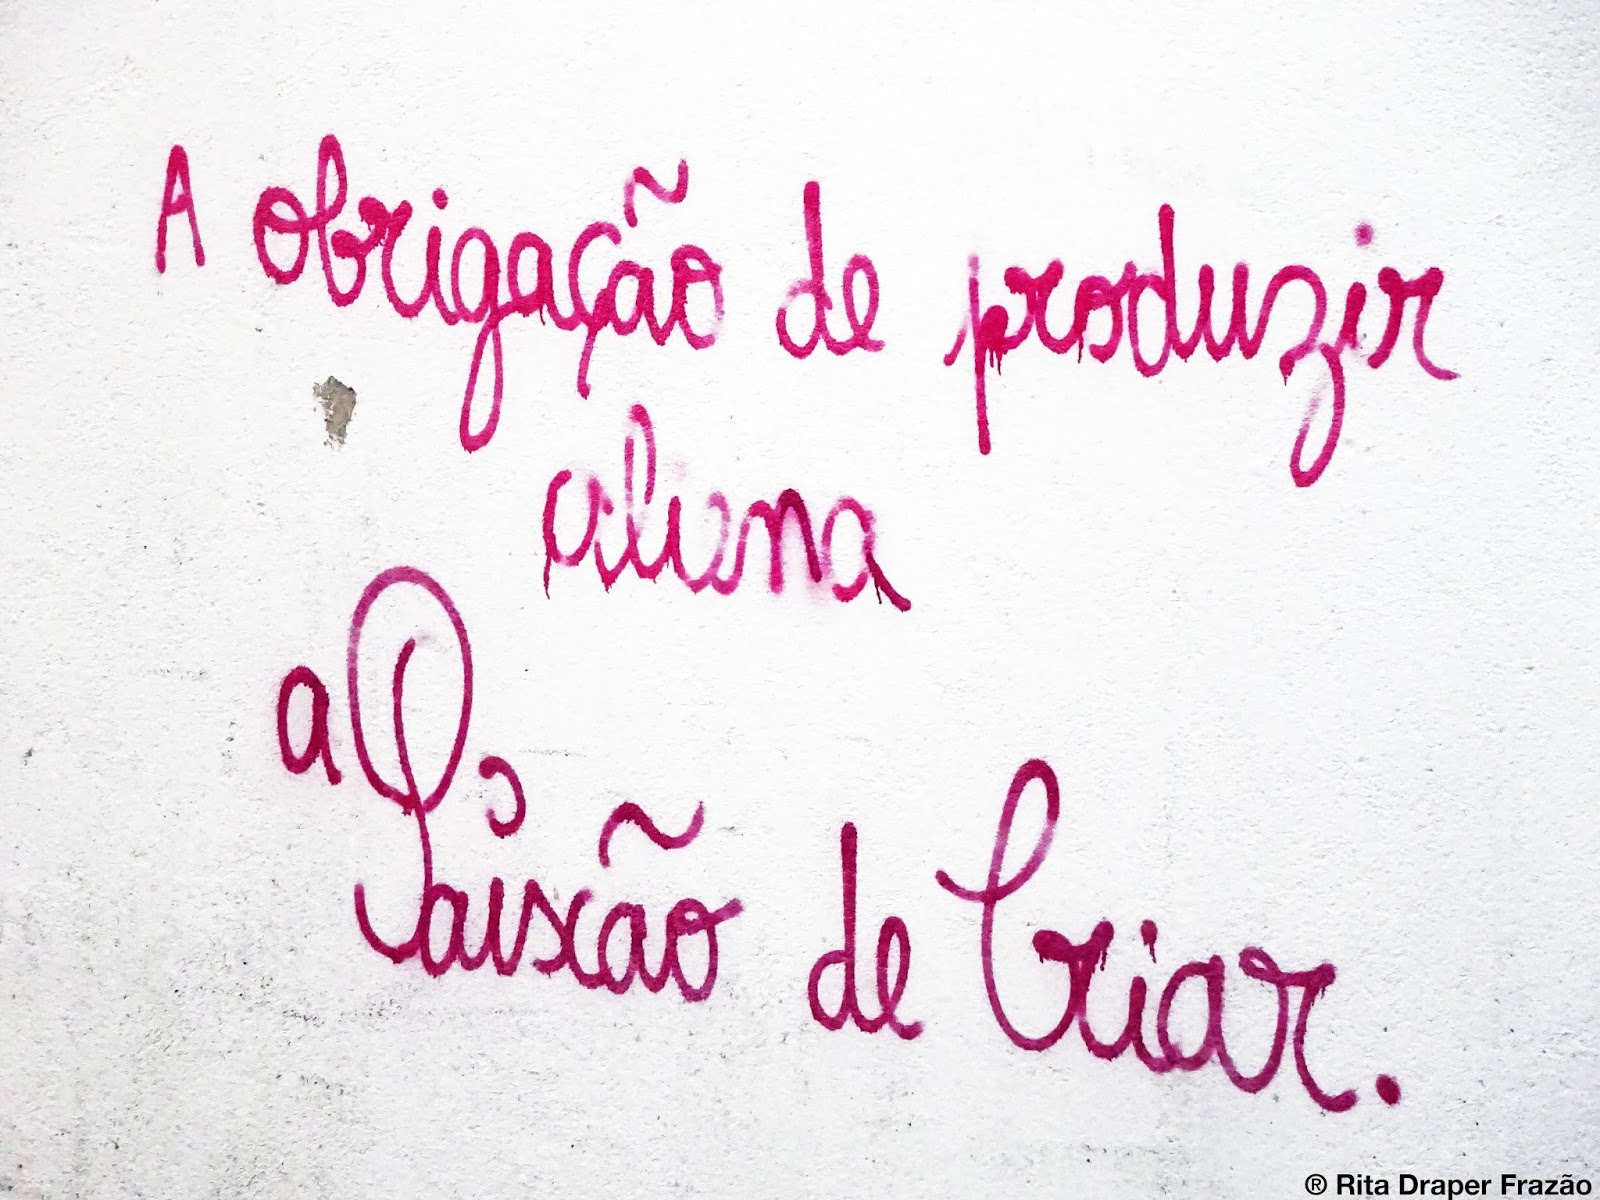 A obrigação de produzir
aliena
a Paixão de Criar.
® Rita Draper Frazão